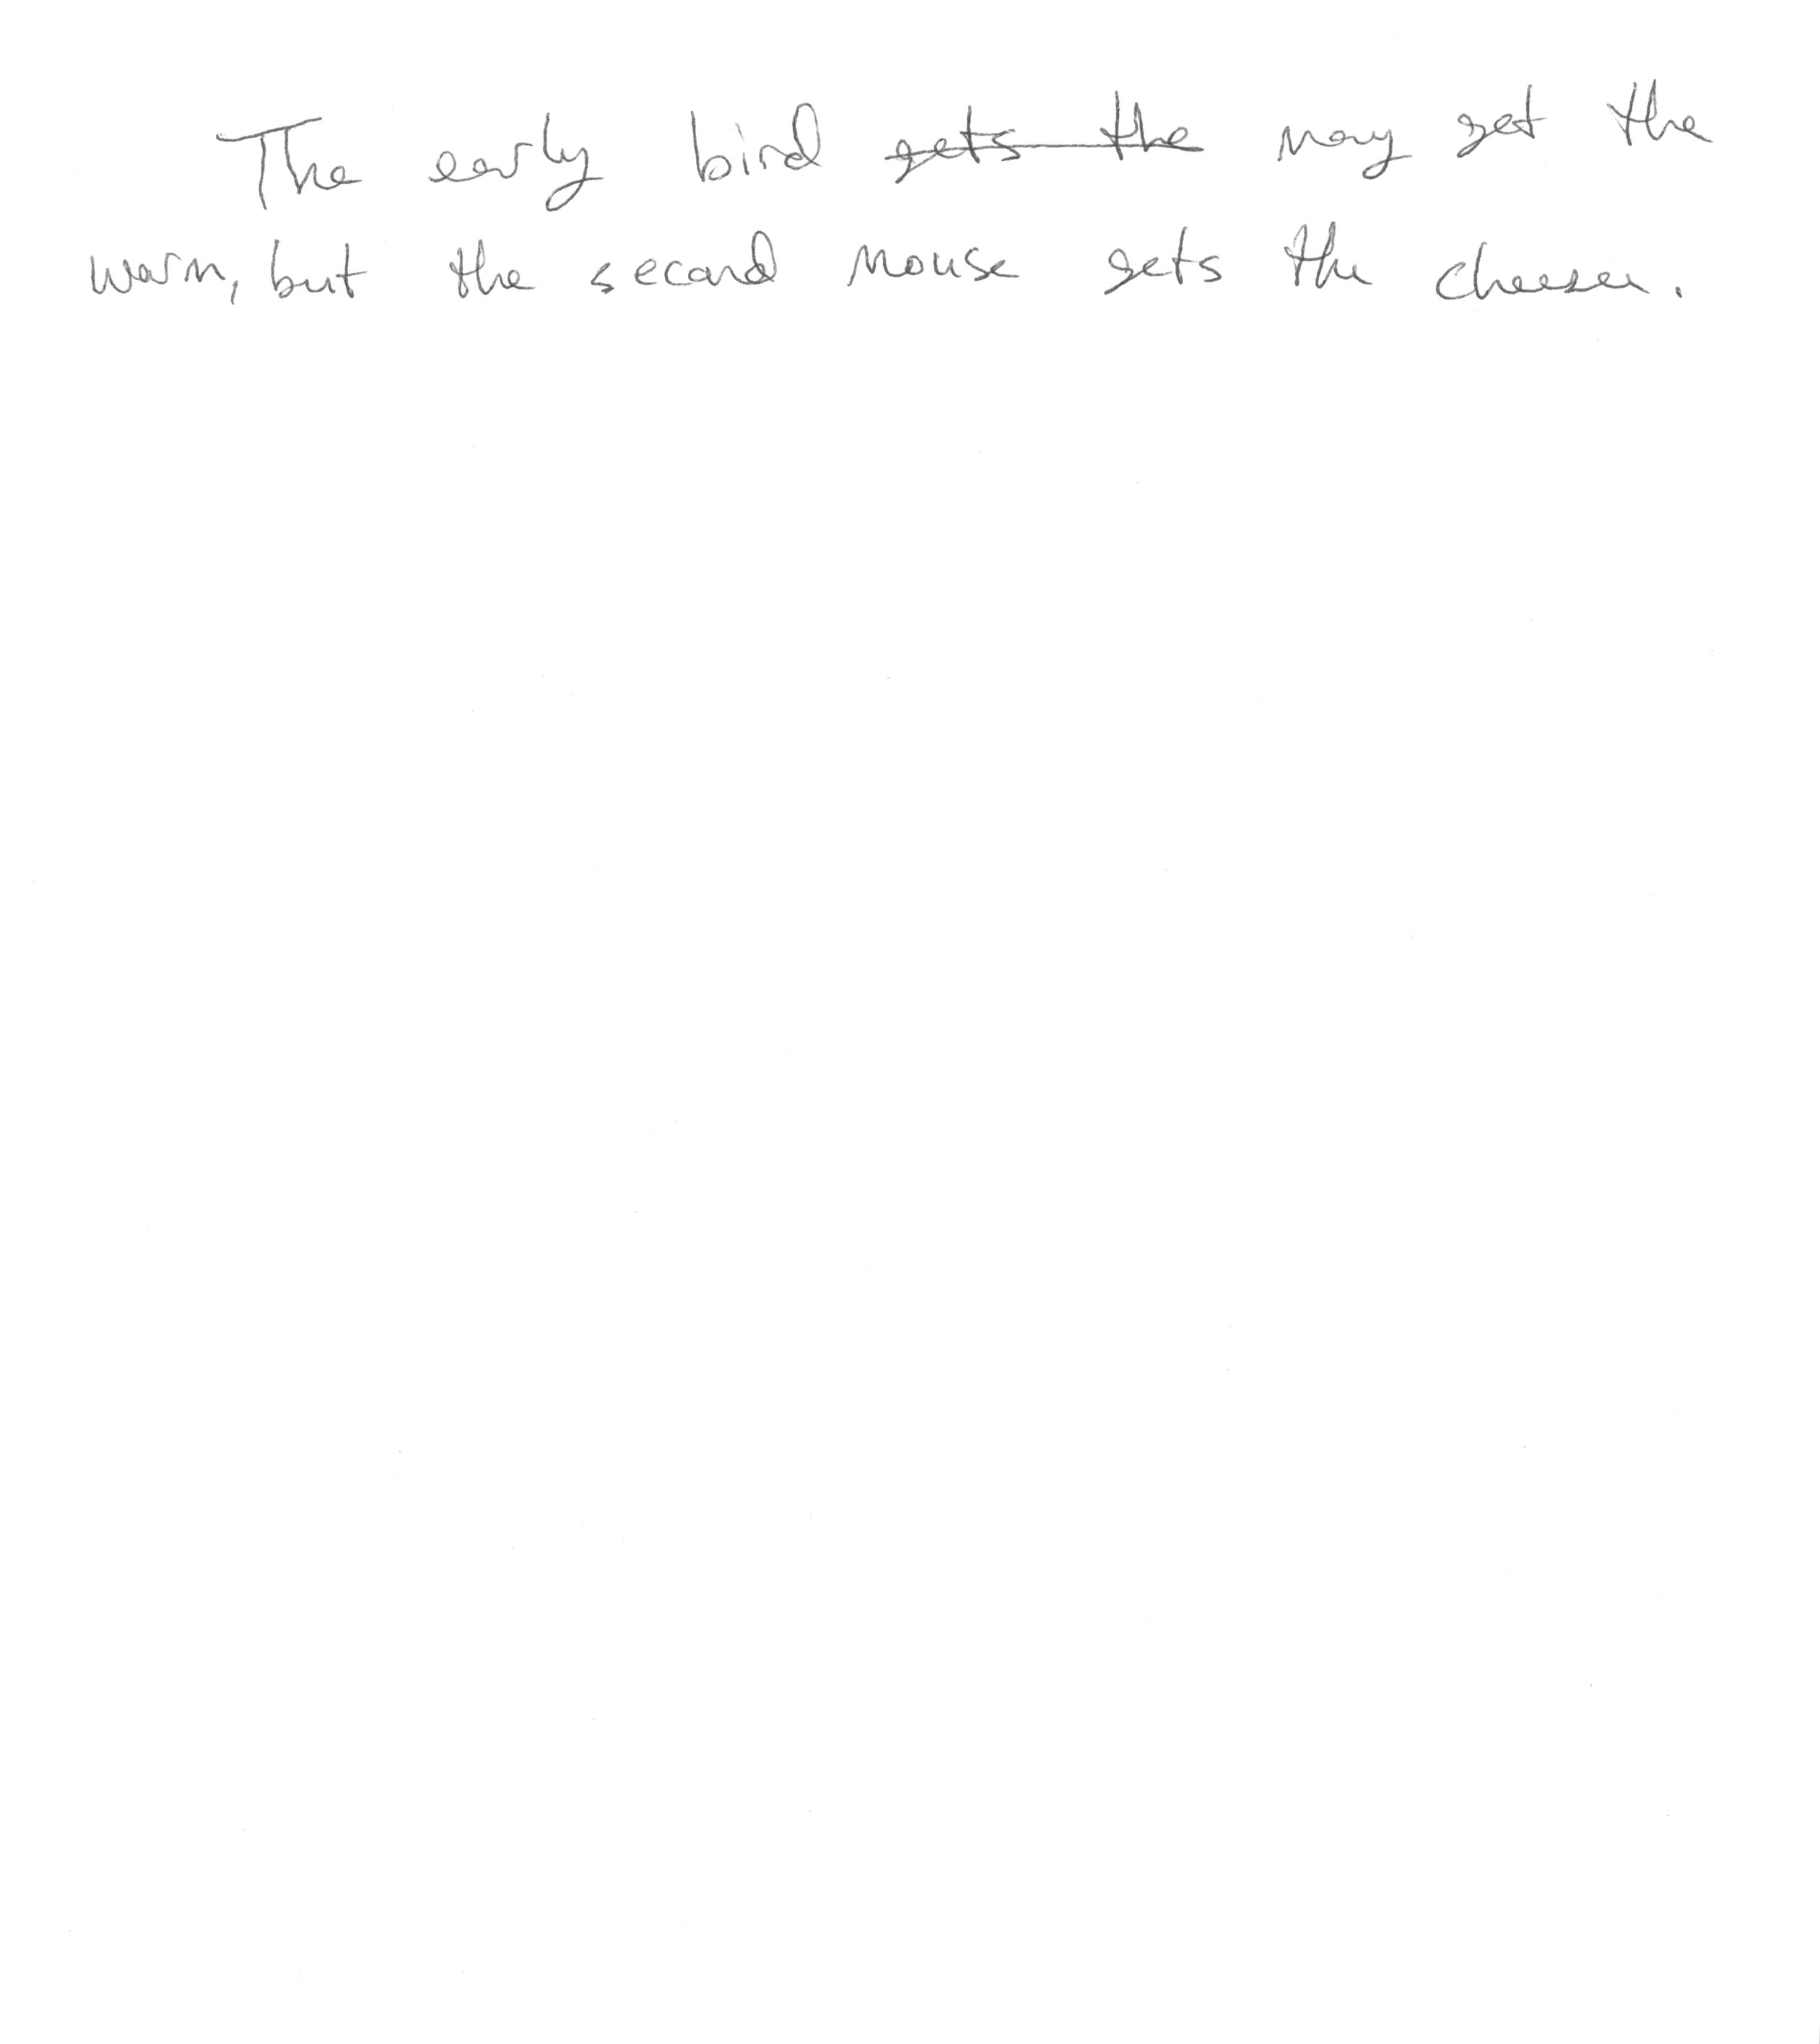 The early bird gets the may get the
worm, but the second mouse gets the cheese.